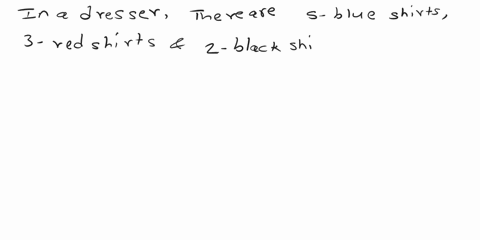 In a dresser, There are 5-blue shirts,
3-red shirts & 2-black shi